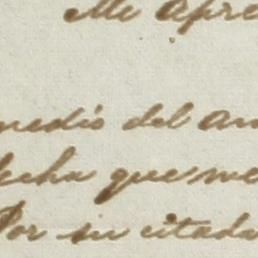 Me Apre
medio del an
fecha que me
Por su citada